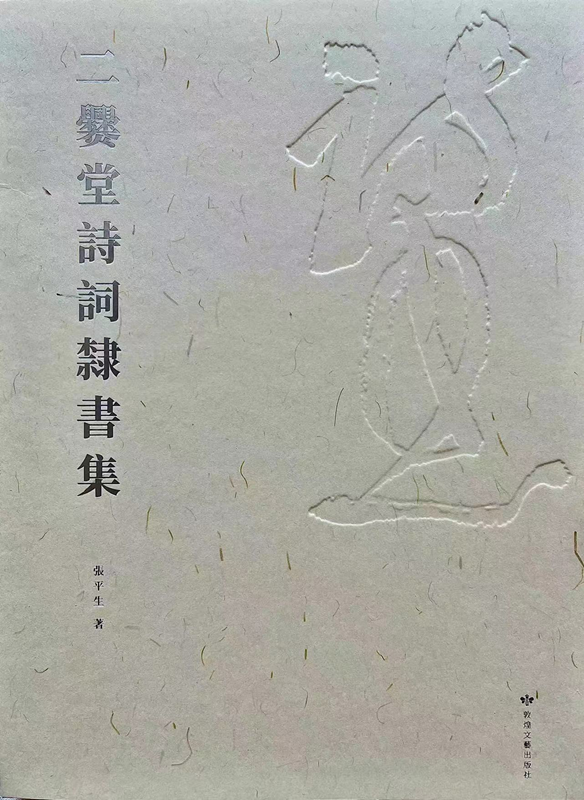 二爨堂詩詞隸書集
張平生 著
敦煌文藝出版社